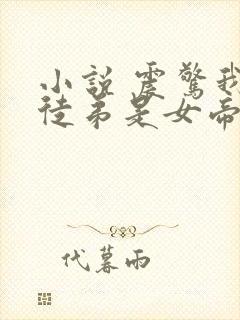 小說 震驚我
徒弟是女帝
代暮雨